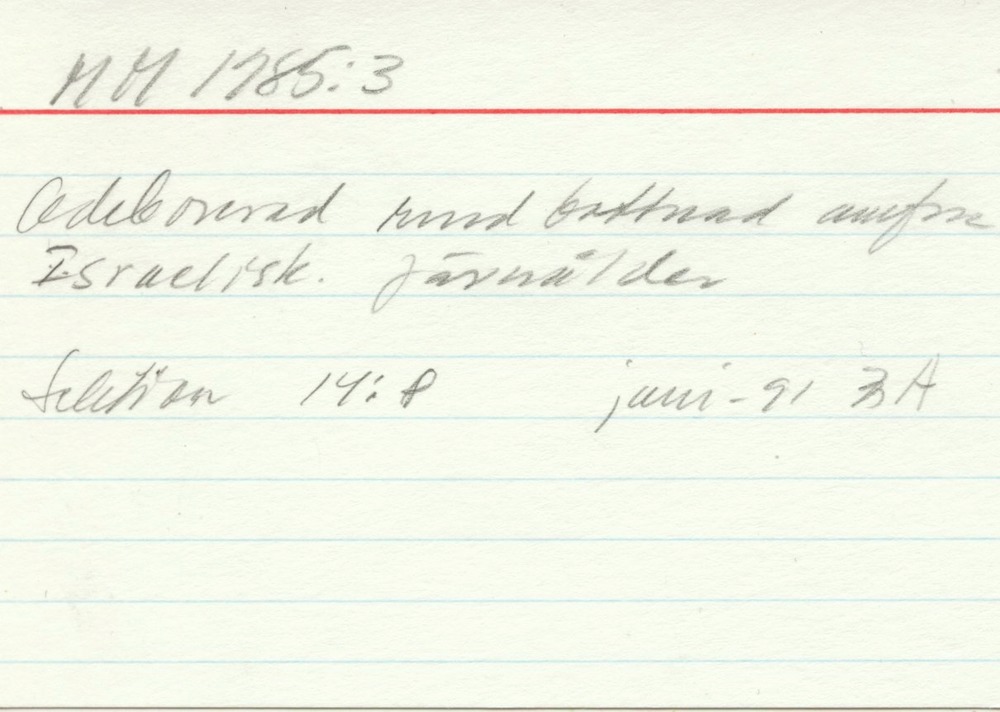 MM 1985:3
Odekorerad rund bottnad amfora
Israelisk. Järnålder
Sektion 14:8 juni-91 BA